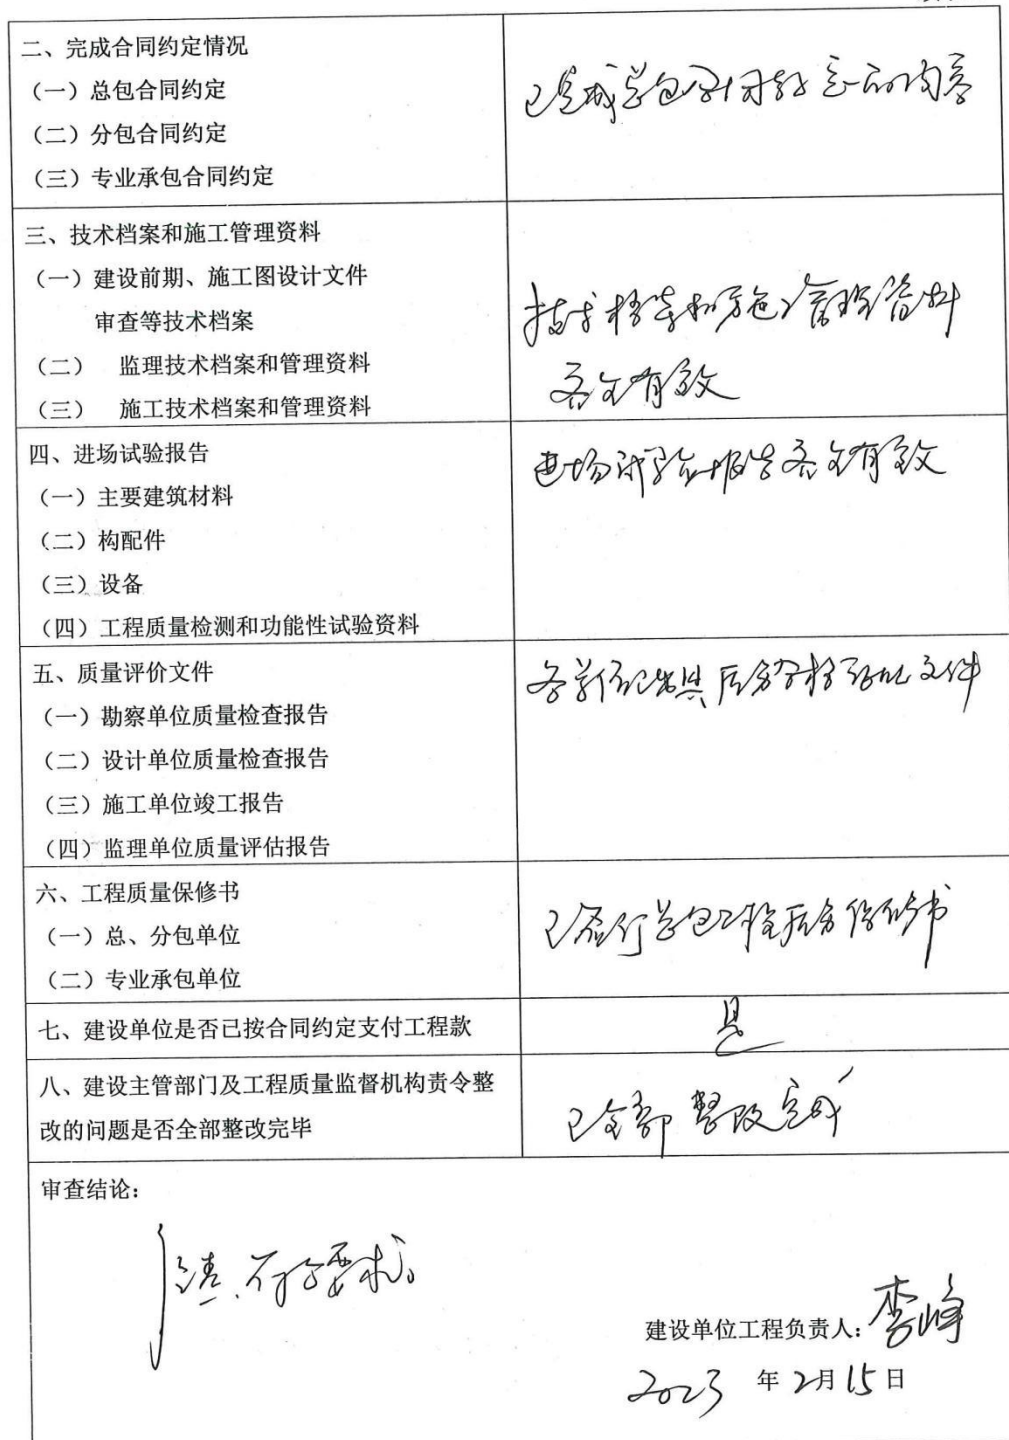 二、完成合同约定情况
（一）总包合同约定
（二）分包合同约定
（三）专业承包合同约定
已完成总包合同约定的内容
三、技术档案和施工管理资料
（一）建设前期、施工图设计文件
审查等技术档案
（二） 监理技术档案和管理资料
（三） 施工技术档案和管理资料
技术档案和施工管理资料
齐全有效
四、进场试验报告
（一）主要建筑材料
（二）构配件
（三）设备
（四）工程质量检测和功能性试验资料
进场试验报告齐全有效
五、质量评价文件
（一）勘察单位质量检查报告
（二）设计单位质量检查报告
（三）施工单位竣工报告
（四）监理单位质量评估报告
各单位已出具质量合格文件
六、工程质量保修书
（一）总、分包单位
（二）专业承包单位
已签订总包工程质量保修书
七、建设单位是否已按合同约定支付工程款
是
八、建设主管部门及工程质量监督机构责令整
改的问题是否全部整改完毕
已全部整改完成
审查结论：
符合要求。
建设单位工程负责人：李峰
2023 年 2月 15 日